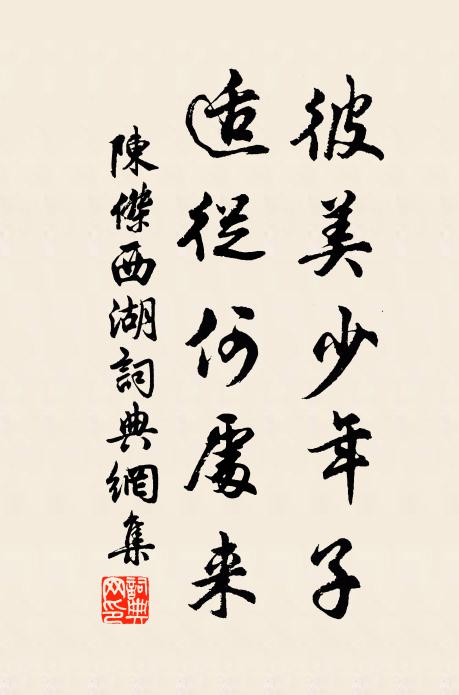 彼美少年子
适從何處来
陳傑西湖詞典網集
詞典網印